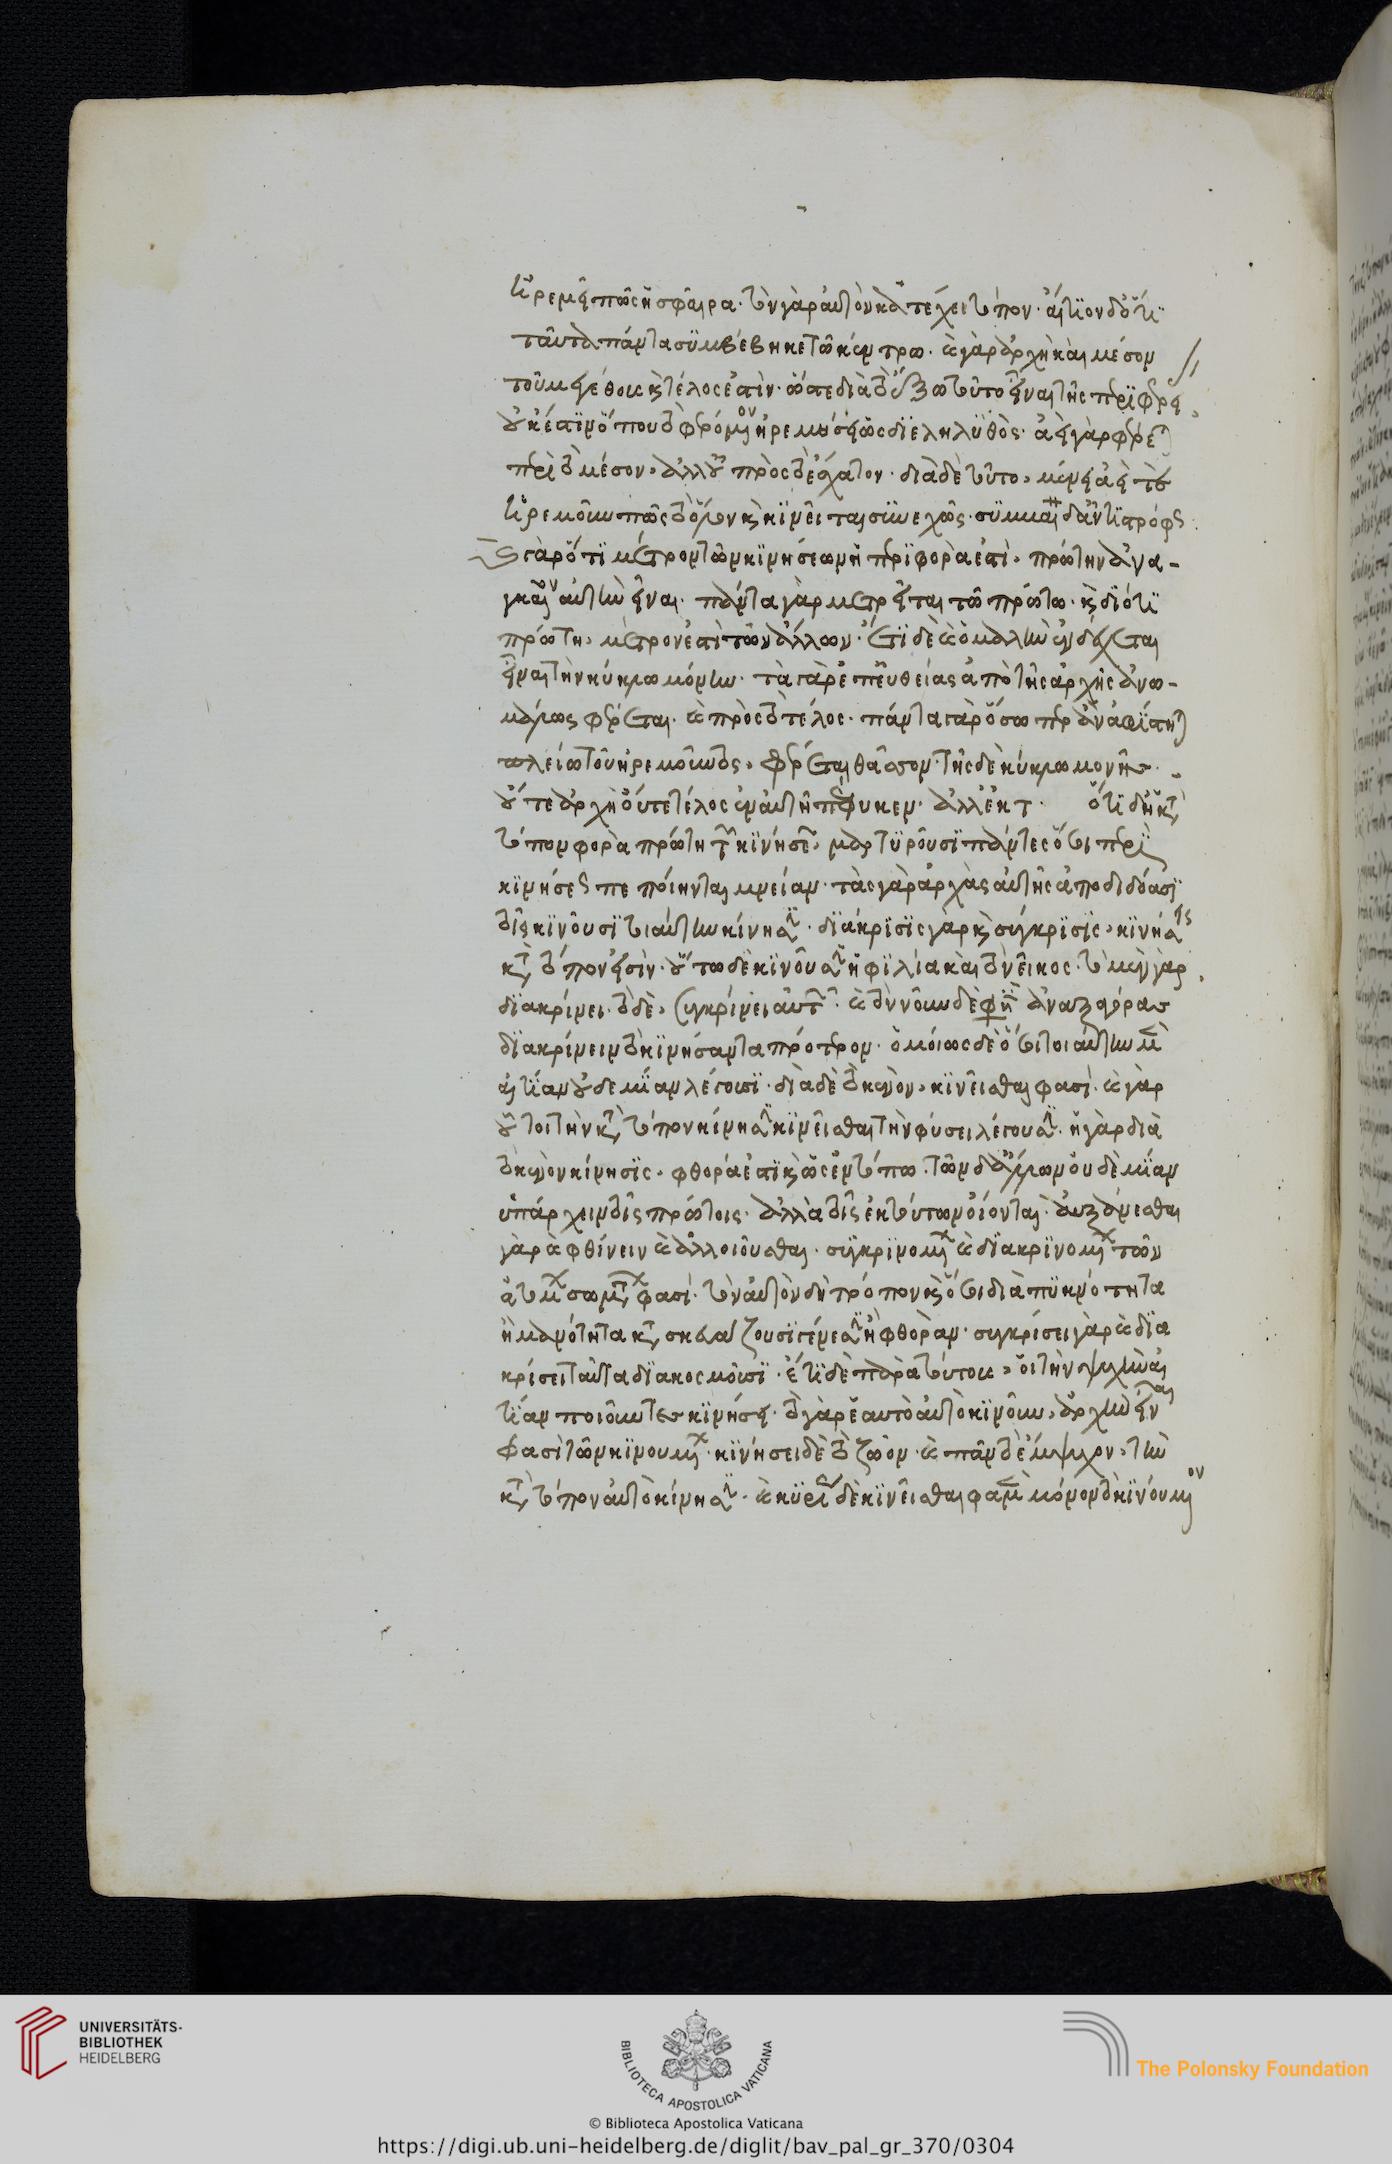 ἠρεμεῖ πως ἡ σφαῖρα· τὸν γὰρ αὐτὸν κατέχει τόπον· αἴτιον δ' ὅτι
ταῦτα πάντα συμβέβηκε τῷ κέντρῳ· καὶ γὰρ ἀρχὴ καὶ μέσον
τοῦ μεγέθους καὶ τέλος ἐστὶν· ὥστε διὰ τὸ ἔξω τοῦτο εἶναι τῆς περιφερεί
οὐκ ἔστιν ὅπου τὸ φερόμενον ἠρεμήσει ὡς διεληλυθὸς· ἀεὶ γὰρ φέρεται
περὶ τὸ μέσον, ἀλλ' οὐ πρὸς τὸ ἔσχατον· διὰ δὲ τοῦτο, μένει ἀεί τε
ἠρεμοῦν πως τὸ ὅλον καὶ κινεῖται συνεχῶς· συμβαίνει δ' ἀντιστρόφως·
γὰρ ὅτι μέτρον τῶν κινήσεων ἡ περιφορὰ ἐστὶ, πρώτην ἀνα-
γκαῖον αὐτὴν εἶναι· πάντα γὰρ μετρεῖται τῷ πρώτῳ· καὶ διότι
πρώτη, μέτρον ἐστὶ τῶν ἄλλων· ἔτι δὲ καὶ ὁμαλὴν ἐνδέχεται
εἶναι τὴν κύκλῳ μόνην· τὰ γὰρ ἐπ' εὐθείας ἀπὸ τῆς ἀρχῆς ἀνω-
μάλως φέρεται· καὶ πρὸς τὸ τέλος· πάντα γὰρ ὅσῳ περ ἂν ἀφίστηται
πλείω τοῦ ἠρεμοῦντος, φέρεται θᾶττον· τῆς δὲ κύκλῳ μόνης
οὔτε ἀρχὴ οὔτε τέλος ἐν αὐτῇ πέφυκεν· ἀλλ' ἐκτ. ὅτι δ' ἡ κατὰ
τόπον φορὰ πρώτη τῶν κινήσεων, μαρτυροῦσι πάντες ὅσοι περὶ
κινήσεως πεποίηνται μνείαν· τὰς γὰρ ἀρχὰς αὐτῆς ἀποδιδόασι
τοῖς κινοῦσι τοιαύτην κίνησιν· διάκρισις γὰρ καὶ σύγκρισις, κινήσεις
κατὰ τόπον εἰσὶν· οὕτω δὲ κινοῦσιν ἡ φιλία καὶ τὸ νεῖκος· τὸ μὲν γὰρ
διακρίνει· τὸ δὲ, συγκρίνει αὐτῶν· καὶ τὸν νοῦν δέ φησιν ἀναξαγόρας
διακρίνειν τὸν κινήσαντα πρότερον· ὁμοίως δὲ ὅσοι τοιαύτην μὲν
αἰτίαν οὐδεμίαν λέγουσι· διὰ δὲ τὸ κενὸν, κινεῖσθαι φασὶ· καὶ γὰρ
οὗτοι τὴν κατὰ τόπον κίνησιν κινεῖσθαι τὴν φύσιν λέγουσιν· ἡ γὰρ διὰ
τὸ κενὸν κίνησις, φθορά ἐστι καὶ ὡς ἐν τόπῳ· τῶν δ' ἄλλων οὐδεμίαν
ὑπάρχειν τοῖς πρώτοις· ἀλλὰ τοῖς ἐκ τούτων οἴονται· αὐξάνεσθαι
γὰρ καὶ φθίνειν καὶ ἀλλοιοῦσθαι· συγκρινομένων καὶ διακρινομένων τῶν
ἀτόμων σωμάτων φασὶ· τὸν αὐτὸν δὴ τρόπον καὶ ὅσοι διὰ πυκνότητα
ἢ μανότητα κατασκευάζουσι γένεσιν ἢ φθορὰν· συγκρίσει γὰρ καὶ δια
κρίσει ταῦτα διακοσμοῦσι· ἔτι δὲ παρὰ τούτους, οἱ τὴν ψυχὴν αἰ
τίαν ποιοῦντες κινήσεως· τὸ γὰρ ἑαυτὸ αὐτὸ κινοῦν, ἀρχὴν εἶναι
φασὶ τῶν κινουμένων· κινήσει δὲ τὸ ζῶον· καὶ πᾶν τὸ ἔμψυχον, τὴν
κατὰ τόπον αὐτὸ κίνησιν· καὶ κυρίως δὲ κινεῖσθαι φαμὲν μόνον τὸ κινούμενον
UNIVERSITÄTS-
BIBLIOTHEK
HEIDELBERG
BIBLIOTECA APOSTOLICA VATICANA
The Polonsky Foundation
© Biblioteca Apostolica Vaticana
https://digi.ub.uni-heidelberg.de/diglit/bav_pal_gr_370/0304